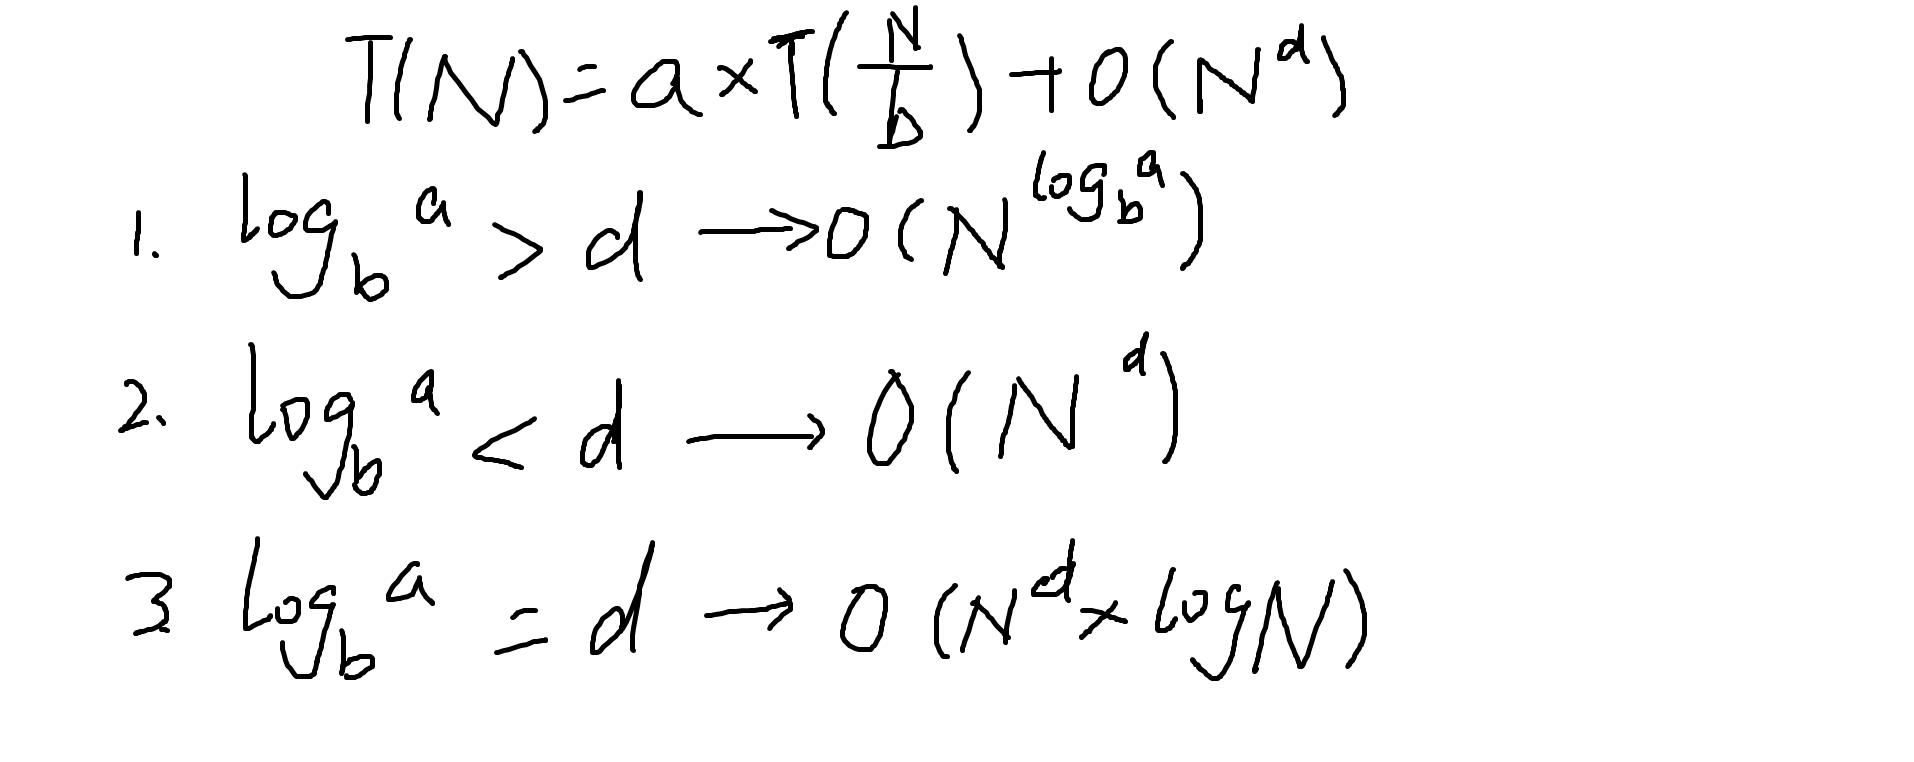 T(N) = a × T(N/b) + O(N^d)
1. log_b^a > d → O(N^(log_b^a))
2. log_b^a < d → O(N^d)
3 log_b^a = d → O(N^d × logN)